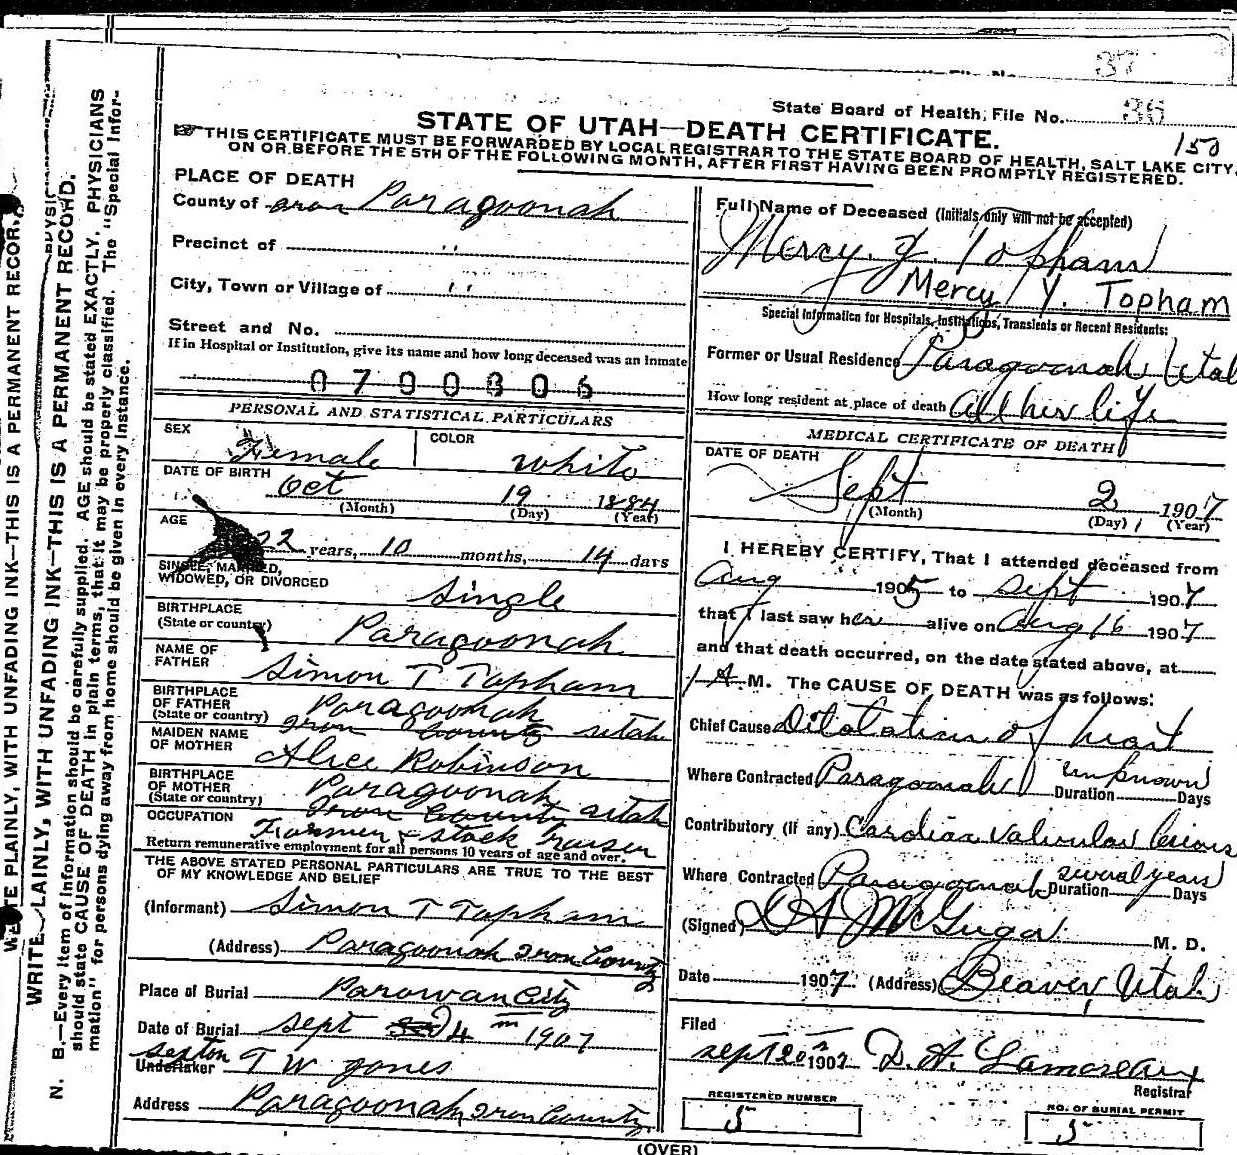 37
State Board of Health, File No. 36
150
STATE OF UTAH—DEATH CERTIFICATE.
THIS CERTIFICATE MUST BE FORWARDED BY LOCAL REGISTRAR TO THE STATE BOARD OF HEALTH, SALT LAKE CITY,
ON OR BEFORE THE 5TH OF THE FOLLOWING MONTH, AFTER FIRST HAVING BEEN PROMPTLY REGISTERED.
PLACE OF DEATH
County of Iron Paragoonah
Precinct of "
City, Town or Village of "
Street and No.
If in Hospital or Institution, give its name and how long deceased was an inmate
0700306
PERSONAL AND STATISTICAL PARTICULARS
SEX Female
COLOR White
DATE OF BIRTH
Oct 19 1884
(Month) (Day) (Year)
AGE
22 years, 10 months, 14 days
SINGLE, MARRIED,
WIDOWED, OR DIVORCED
Single
BIRTHPLACE
(State or country)
Paragoonah
NAME OF
FATHER
Simon T Topham
BIRTHPLACE
OF FATHER
(State or country)
Paragoonah
Iron County Utah
MAIDEN NAME
OF MOTHER
Alice Robinson
BIRTHPLACE
OF MOTHER
(State or country)
Paragoonah
Iron County Utah
OCCUPATION
Farmer & stock raiser
Return remunerative employment for all persons 10 years of age and over.
THE ABOVE STATED PERSONAL PARTICULARS ARE TRUE TO THE BEST
OF MY KNOWLEDGE AND BELIEF
(Informant) Simon T Topham
(Address) Paragoonah Iron County
Place of Burial Parowan City
Date of Burial Sept 4 1907
sexton
Undertaker T W Jones
Address Paragoonah, Iron County
Full Name of Deceased (Initials only will not be accepted)
Mercy. Y. Topham
Mercy Y. Topham
Special Information for Hospitals, Institutions, Transients or Recent Residents:
Former or Usual Residence Paragoonah Utah
How long resident at place of death All her life
MEDICAL CERTIFICATE OF DEATH
DATE OF DEATH
Sept 2 1907
(Month) (Day) (Year)
I HEREBY CERTIFY, That I attended deceased from
Aug 1905 to Sept 1907
that I last saw her alive on Aug 16 1907
and that death occurred, on the date stated above, at
1 A. M. The CAUSE OF DEATH was as follows:
Chief Cause Dilatation of heart
Where Contracted Paragoonah unknown
Duration Days
Contributory (if any) Cardiac valvular lesions
Where Contracted Paragoonah several years
Duration Days
(Signed) McGugar M. D.
Date 1907 (Address) Beaver, Utah
Filed
Sept 20 1907 D. A. Lamoreaux
Registrar
REGISTERED NUMBER
5
NO. OF BURIAL PERMIT
5
(OVER)
WRITE PLAINLY, WITH UNFADING INK—THIS IS A PERMANENT RECORD.
WRITE PLAINLY, WITH UNFADING INK—THIS IS A PERMANENT RECORD.
N. B.—Every item of information should be carefully supplied. AGE should be stated EXACTLY, PHYSICIANS
should state CAUSE OF DEATH in plain terms, that it may be properly classified. The "Special Infor-
mation" for persons dying away from home should be given in every instance.